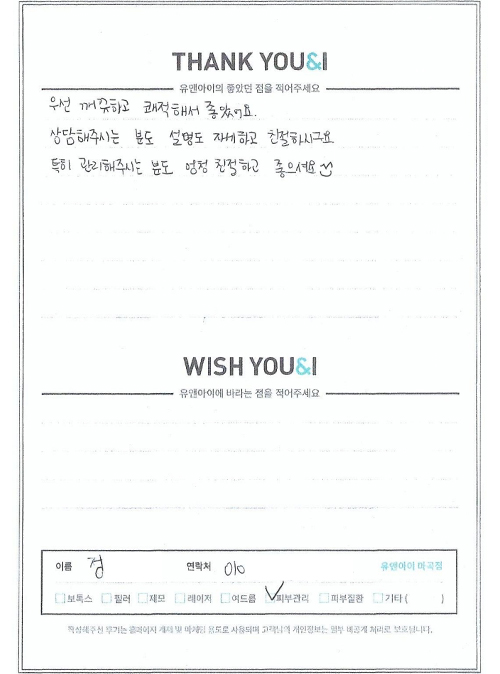 THANK YOU&I
유앤아이의 좋았던 점을 적어주세요
우선 깨끗하고 쾌적해서 좋았어요.
상담해주시는 분도 설명도 자세하고 친절하시구요
특히 관리해주시는 분도 엄청 친절하고 좋으세요
WISH YOU&I
유앤아이에 바라는 점을 적어주세요
이름 정 연락처 010 유앤아이 마곡점
보톡스 필러 제모 레이저 여드름 피부관리 피부질환 기타 ( )
작성해주신 후기는 홈페이지 게재 및 마케팅 용도로 사용되며 고객님의 개인정보는 일부 비공개 처리로 보호됩니다.